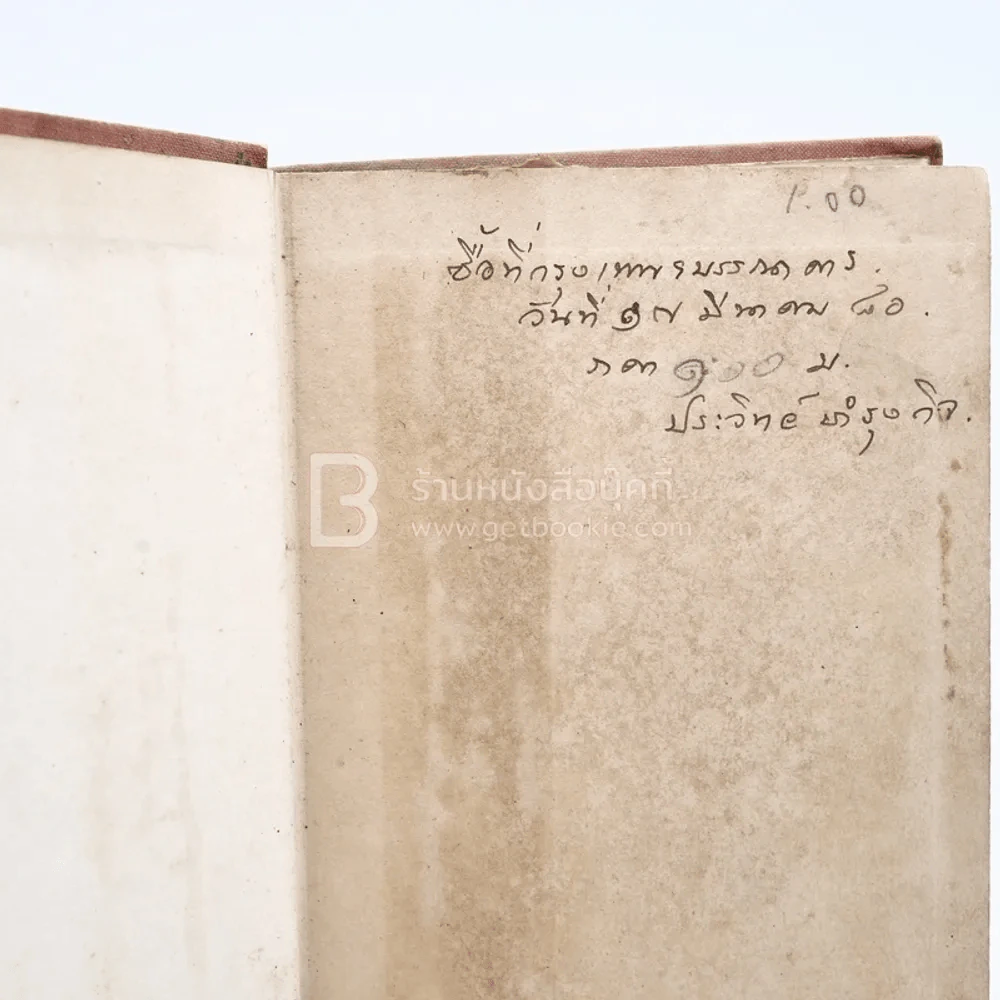 1.00
ซื้อที่กรุงเทพฯบรรณาคาร.
วันที่ ๑๗ มีนาคม ๘๐.
ราคา ๑.๐๐ บ.
ประวิทย์ บำรุงกิจ.
ร้านหนังสือบุ๊คกี้
www.getbookie.com